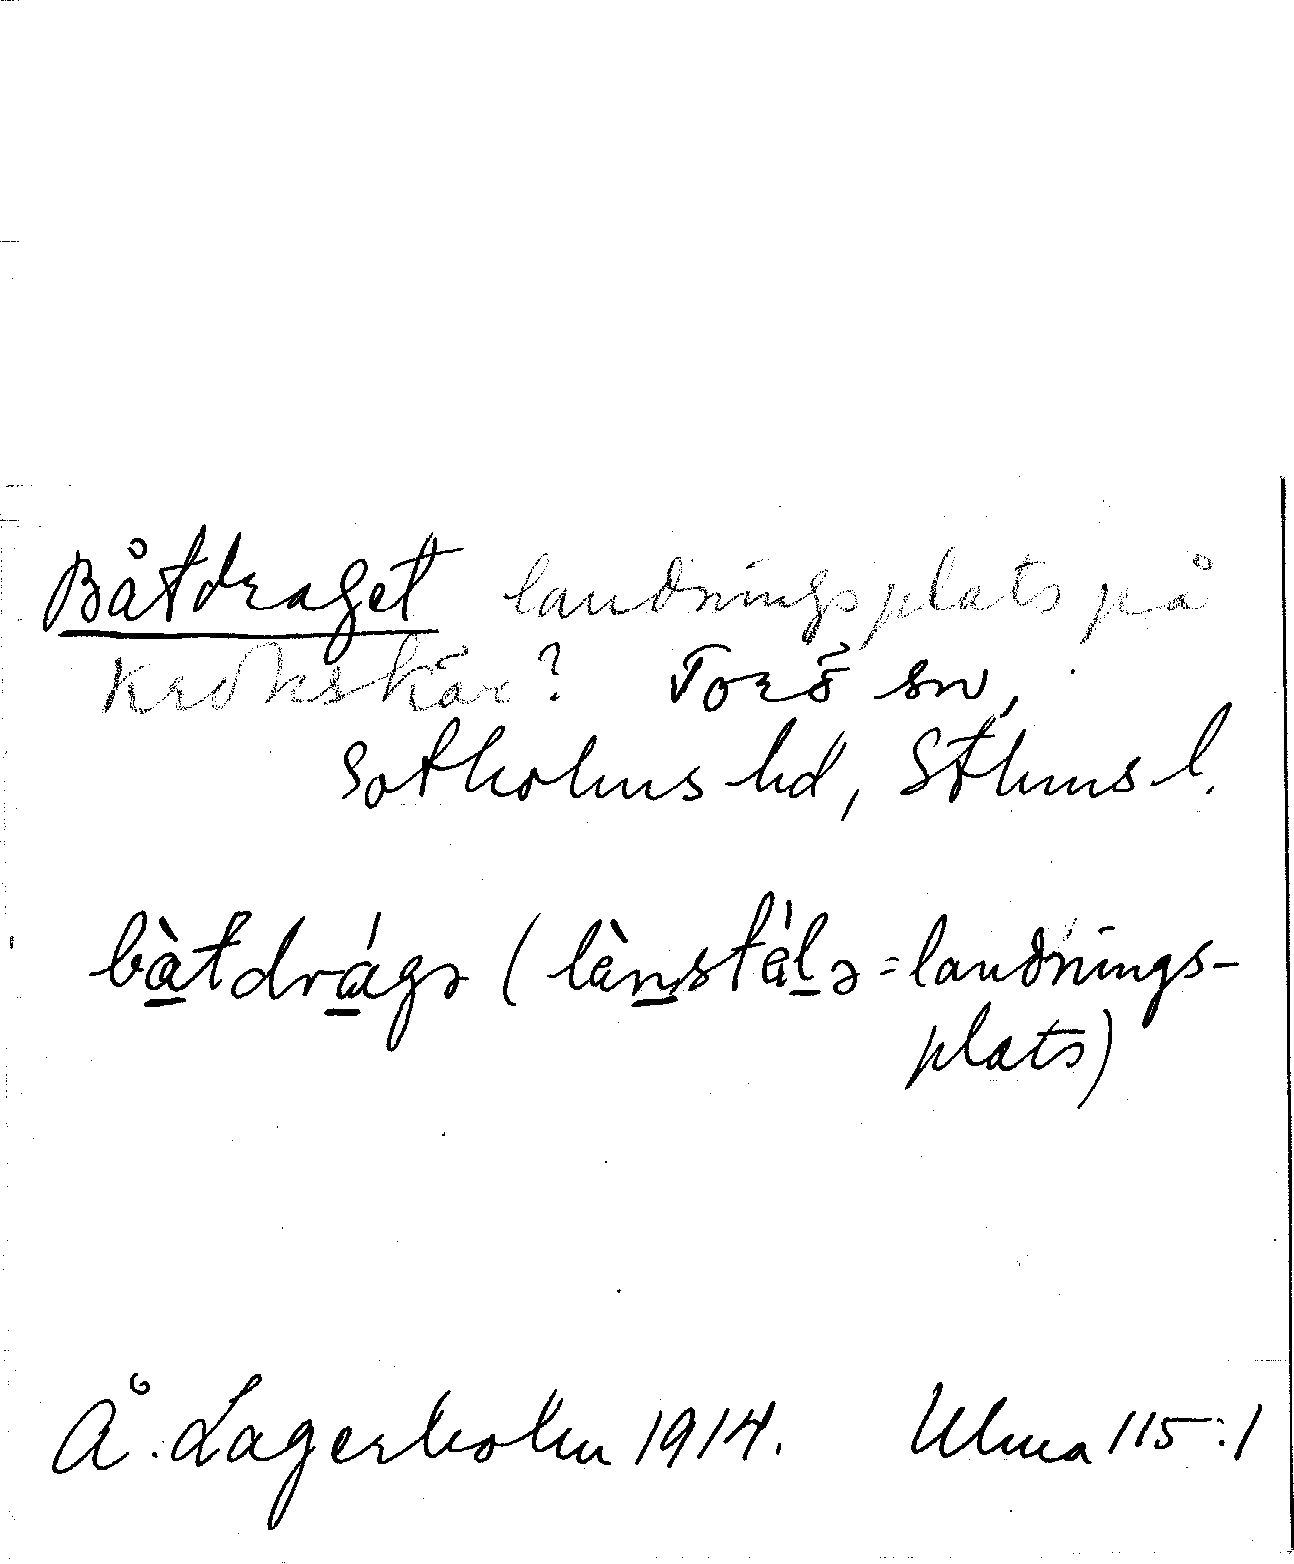 Båtdraget landningsplats på
Krokskär? Torö sn,
Sotholms hd, Sthms l.
bàtdrágə (lànstál ə = landnings-
plats)
Å. Lagerholm 1914. Ulma 115:1